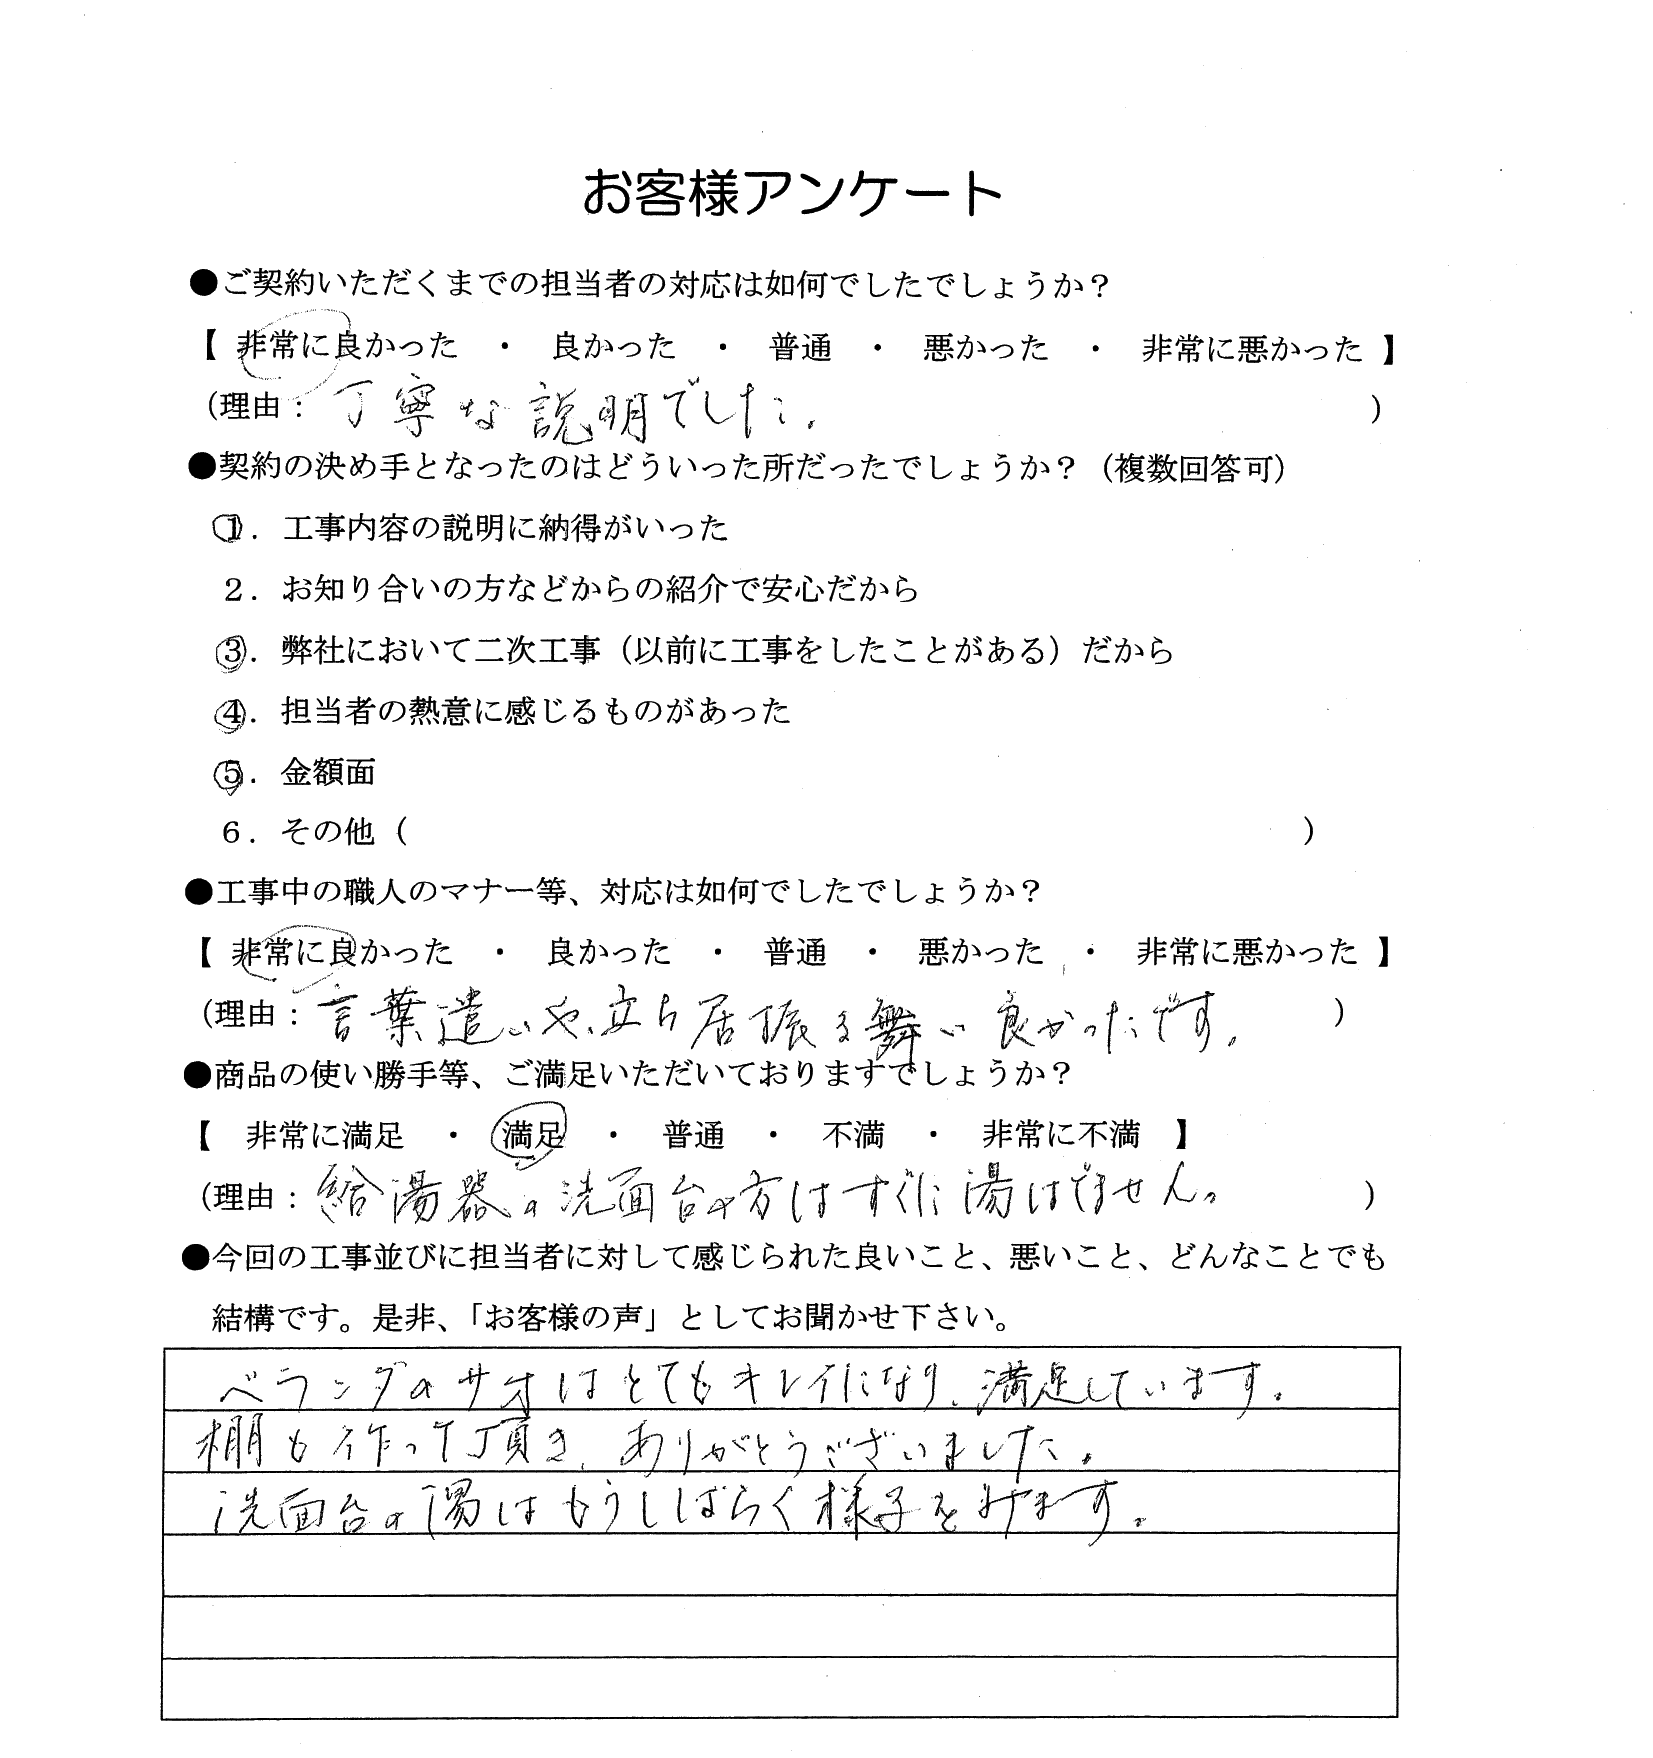 お客様アンケート
●ご契約いただくまでの担当者の対応は如何でしたでしょうか？
【 非常に良かった ・ 良かった ・ 普通 ・ 悪かった ・ 非常に悪かった 】
（理由：丁寧な説明でした。）
●契約の決め手となったのはどういった所だったでしょうか？（複数回答可）
１．工事内容の説明に納得がいった
２．お知り合いの方などからの紹介で安心だから
３．弊社において二次工事（以前に工事をしたことがある）だから
４．担当者の熱意に感じるものがあった
５．金額面
６．その他（ ）
●工事中の職人のマナー等、対応は如何でしたでしょうか？
【 非常に良かった ・ 良かった ・ 普通 ・ 悪かった ・ 非常に悪かった 】
（理由：言葉遣いや、立ち居振る舞い良かったです。）
●商品の使い勝手等、ご満足いただいておりますでしょうか？
【 非常に満足 ・ 満足 ・ 普通 ・ 不満 ・ 非常に不満 】
（理由：給湯器の洗面台の方はすぐに湯はでません。）
●今回の工事並びに担当者に対して感じられた良いこと、悪いこと、どんなことでも
結構です。是非、「お客様の声」としてお聞かせ下さい。
ベランダのサオはとてもキレイになり、満足しています。
棚も作って頂き、ありがとうございました。
洗面台の湯はもうしばらく様子をみます。